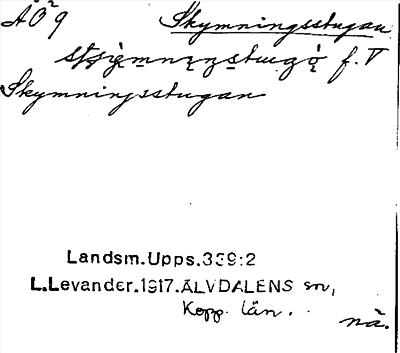 ÅÖ²9 Skymningsstugan
f. V
Skymningsstugan
Landsm.Upps.339:2
L.Levander.1917.ÄLVDALENS sn,
Kopp. län.
nä.